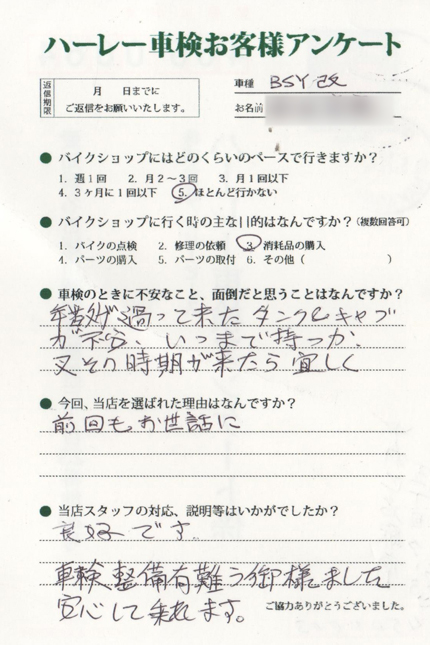 ハーレー車検お客様アンケート
返信期限
月　日までに
ご返信をお願いいたします。
車種 BSY改
お名前
● バイクショップにはどのくらいのペースで行きますか？
1. 週1回　2. 月2～3回　3. 月1回以下
4. 3ヶ月に1回以下　5. ほとんど行かない
● バイクショップに行く時の主な目的はなんですか？（複数回答可）
1. バイクの点検　2. 修理の依頼　3. 消耗品の購入
4. パーツの購入　5. パーツの取付　6. その他（　　　）
● 車検のときに不安なこと、面倒だと思うことはなんですか？
年数が過って来たタンク&キャブ
が不安、いつまで持つか、
又その時期が来たら宜しく
● 今回、当店を選ばれた理由はなんですか？
前回もお世話に
● 当店スタッフの対応、説明等はいかがでしたか？
良好です。
車検、整備有難う御様ました
安心して乗れます。
ご協力ありがとうございました。